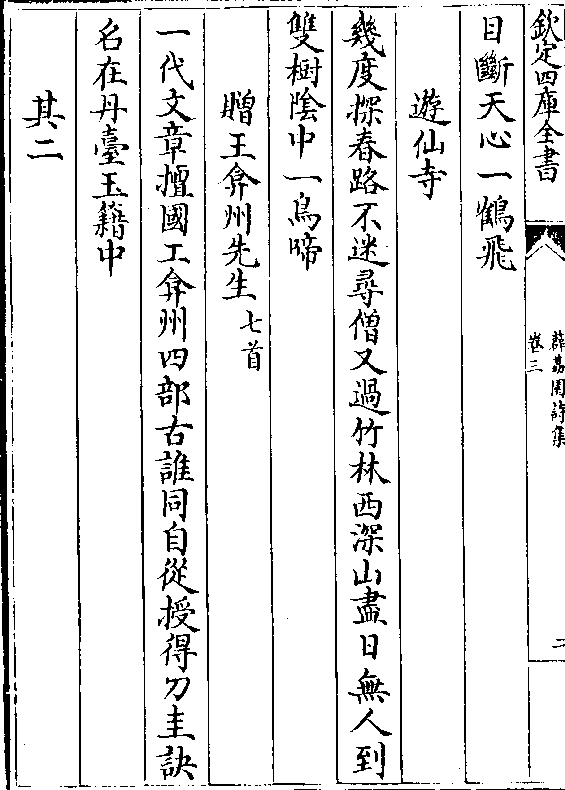 欽定四庫全書
薜荔園詩集
卷三
二
目斷天心一鶴飛
遊仙寺
幾度探春路不迷尋僧又過竹林西深山盡日無人到
雙樹陰中一鳥啼
贈王弇州先生七首
一代文章擅國工弇州四部古誰同自從授得刀圭訣
名在丹臺玉籍中
其二